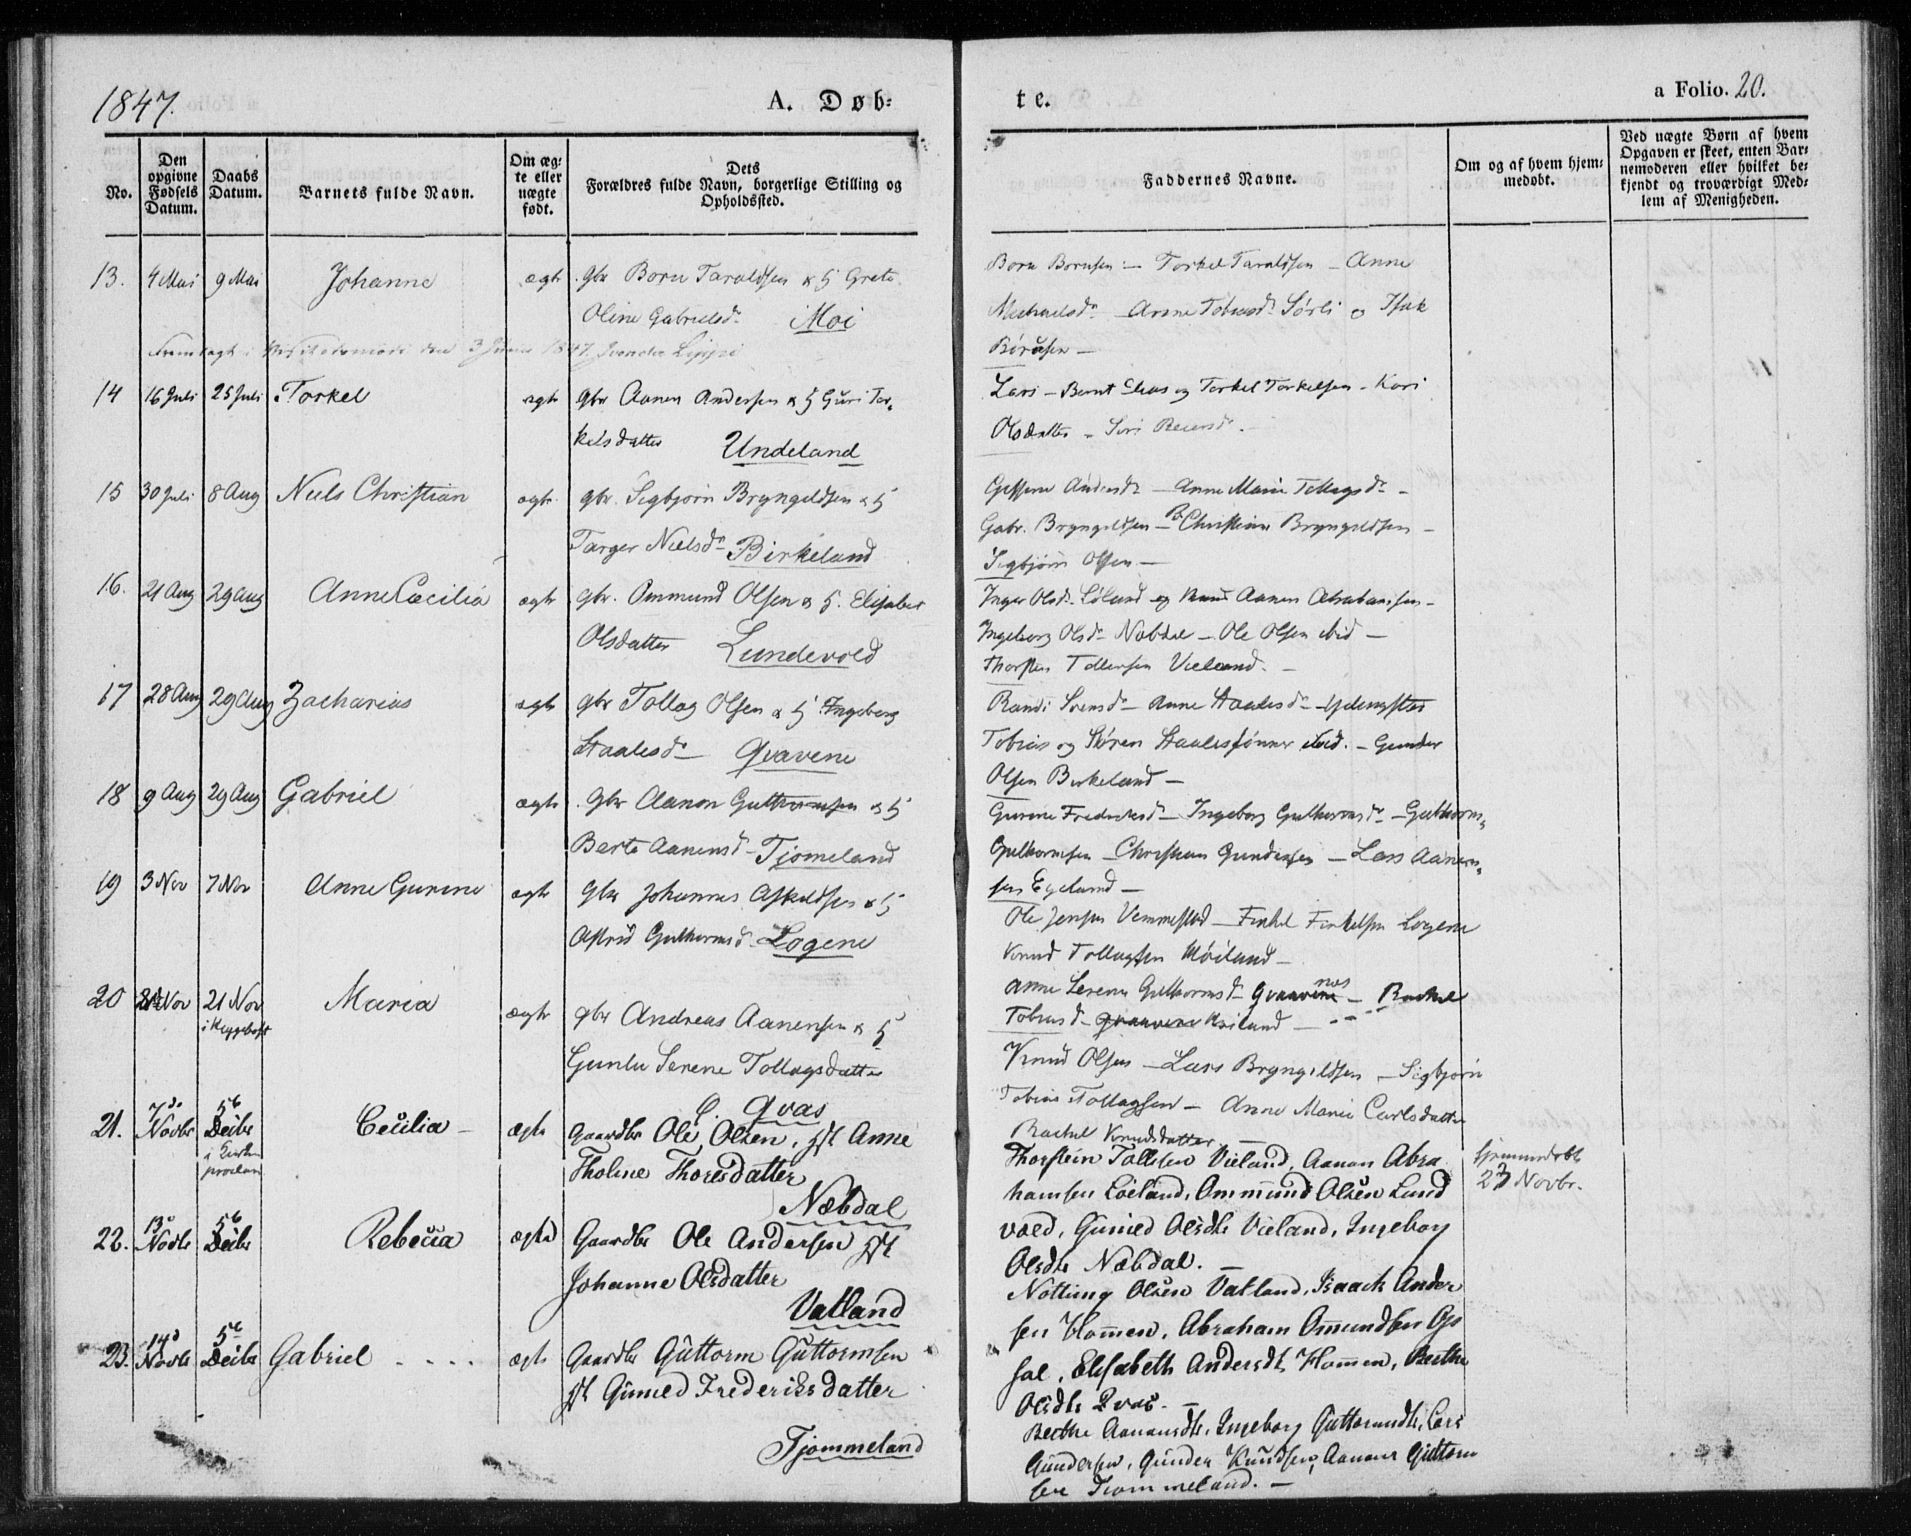 1847.
A. Døb-
te.
a Folio. 20.
No.
Den opgivne Fødsels Datum.
Daabs Datum.
Barnets fulde Navn.
Om æg-
te eller
nægte
født.
Dets
Forældres fulde Navn, borgerlige Stilling og
Opholdssted.
Faddernes Navne.
Om og af hvem hjem-
medøbt.
Ved nægte Børn af hvem
Opgaven er skeet, enten Bar-
nemoderen eller hvilket be-
kjendt og troværdigt Med-
lem af Menigheden.
13. 4 Mai 9 Mai Johanne ægte gbr Boru Taraldsen & h Grete
Oline Gabrielsdr Moi
Torkel Taraldsen - Anne
Anne Tobiasdr Sørli
den 3 Junii 1847.
14 16 Juli 25 Juli Torkel ægte gbr Aanen Andersen & h Guri Tor-
kelsdatter Undeland
Lars - Bernt Elias og Torkel Torkelsen - Kari
Olsdatter - Siri
15 30 Juli 8 Aug Niels Christian ægte gbr. Sigbjørn Bryngeldsen & h
Targer Nielsdr Birkeland
Andersdr - Anne Marie Tollagsdr -
Gabr. Bryngeldsen - Christian Bryngeldsen -
Sigbjørn Olsen -
16. 21 Aug 29 Aug Anne Cæcilia ægte gbr. Ommund Olsen & h. Elisabet
Olsdatter Lundevold
Inger Olsdr Løland og Aanen Abrahamsen -
Ingeborg Olsdr Næbdal - Ole Olsen ibid -
Thorsten Tollevsen Vieland. -
17 28 Aug 29 Aug Zacharias ægte gbr Tollag Olsen & h Ingeborg
Staalesdr Qvavene
Randi Svensdr - Anne Staalesdr
Tobias og Søren Staalesønner ibid. - Gunder
Olsen Birkeland -
18 9 Aug 29 Aug Gabriel ægte gbr Aanon Guthormsen & h
Berte Aanensd - Tjomeland
Gurine Fredriksd - Ingeborg Guthormsdr - Guthorm-
Guthormsen - Christian Gundersen - Lars Aanen-
sen Egeland -
19 3 Nov 7 Nov Anne Gurine ægte gbr Johannes Askildsen & h
Astrid Guthormsd Logene
Ole Jensen Vemmestad - Finkel Finkelsen Logene
Knud Tollagsen Møiland -
Anne Serene Guthormsd - Rachel
Tobiasd - Møiland -
20 Nov 21 Nov Maria ægte gbr Andreas Aanensen & h
Serene Tollagsdatter
Qvas
Knud Olsen - Lars Bryngildsen - Sigbjørn
Tobias Tollagsen - Anne Marie Carlsdatter
Rachel Knudsdatter
21. 7de Novbr 5te Decbr Cecilia - ægte Gaardbr Ole Olsen, Anne
Tholine Thoresdatter
Næbdal
Thorstein Tollefsen Vieland, Aanon Abra
hamsen Løeland, Ommund Olsen Lund
vold, Gunild Olsdtr Vieland, Ingeborg
Olsdtr Næbdal. -
hjemmedøbt
23 Novbr.
22. 13de Novbr 5te Decbr Rebecca ægte Gaardbr Ole Andersen
Johanne Olsdatter
Vatland
Nottung Olsen Vatland, Isaach Ander
sen Hommen, Abraham Ommundsen Ow
Elisabeth Andersdt Hommen, Berthe
Olsdtr Qvas. -
23. 14d Novbr 5te Decbr Gabriel ægte Gaardbr Guttorm Guttormsen
Gunild Frederiksdatter
Tjommeland
Berthe Aanonsdtr, Ingeborg Guttormsdtr, Lars
Gundersen, Gunder Knudsen, Aanon Guttorm
sen Tjommeland. -